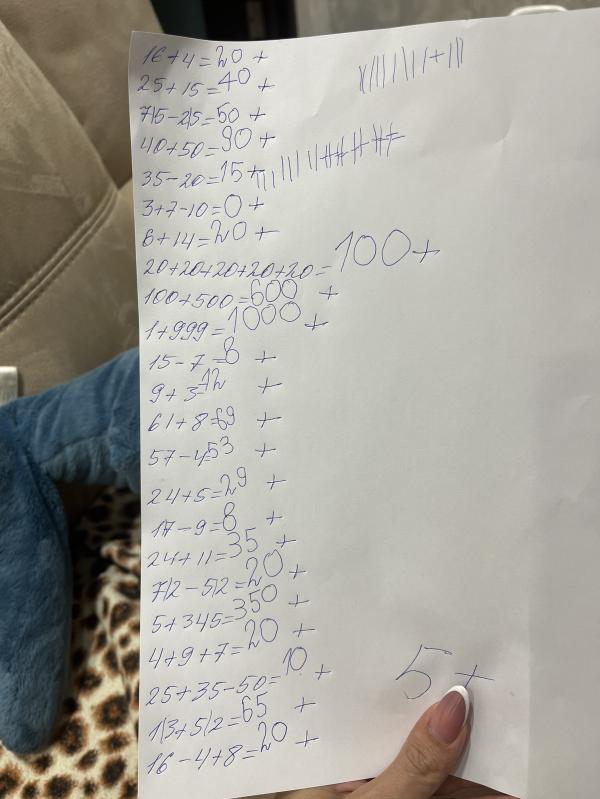 16+4=20 +
25+15=40 +
75-25=50 +
40+50=90 +
35-20=15+
3+7-10=0 +
6+14=20 +
20+20+20+20+20=100+
100+500=600 +
1+999=1000 +
15-7=8 +
9+3=12 +
61+8=69 +
57-4=53 +
24+5=29 +
17-9=8 +
24+11=35 +
72-52=20 +
5+345=350 +
4+9+7=20 +
25+35-50=10 +
13+52=65 +
16-4+8=20 +
5+